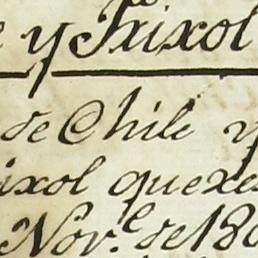 y Frixol
de Chile y
ixol que
Nov.e de 18